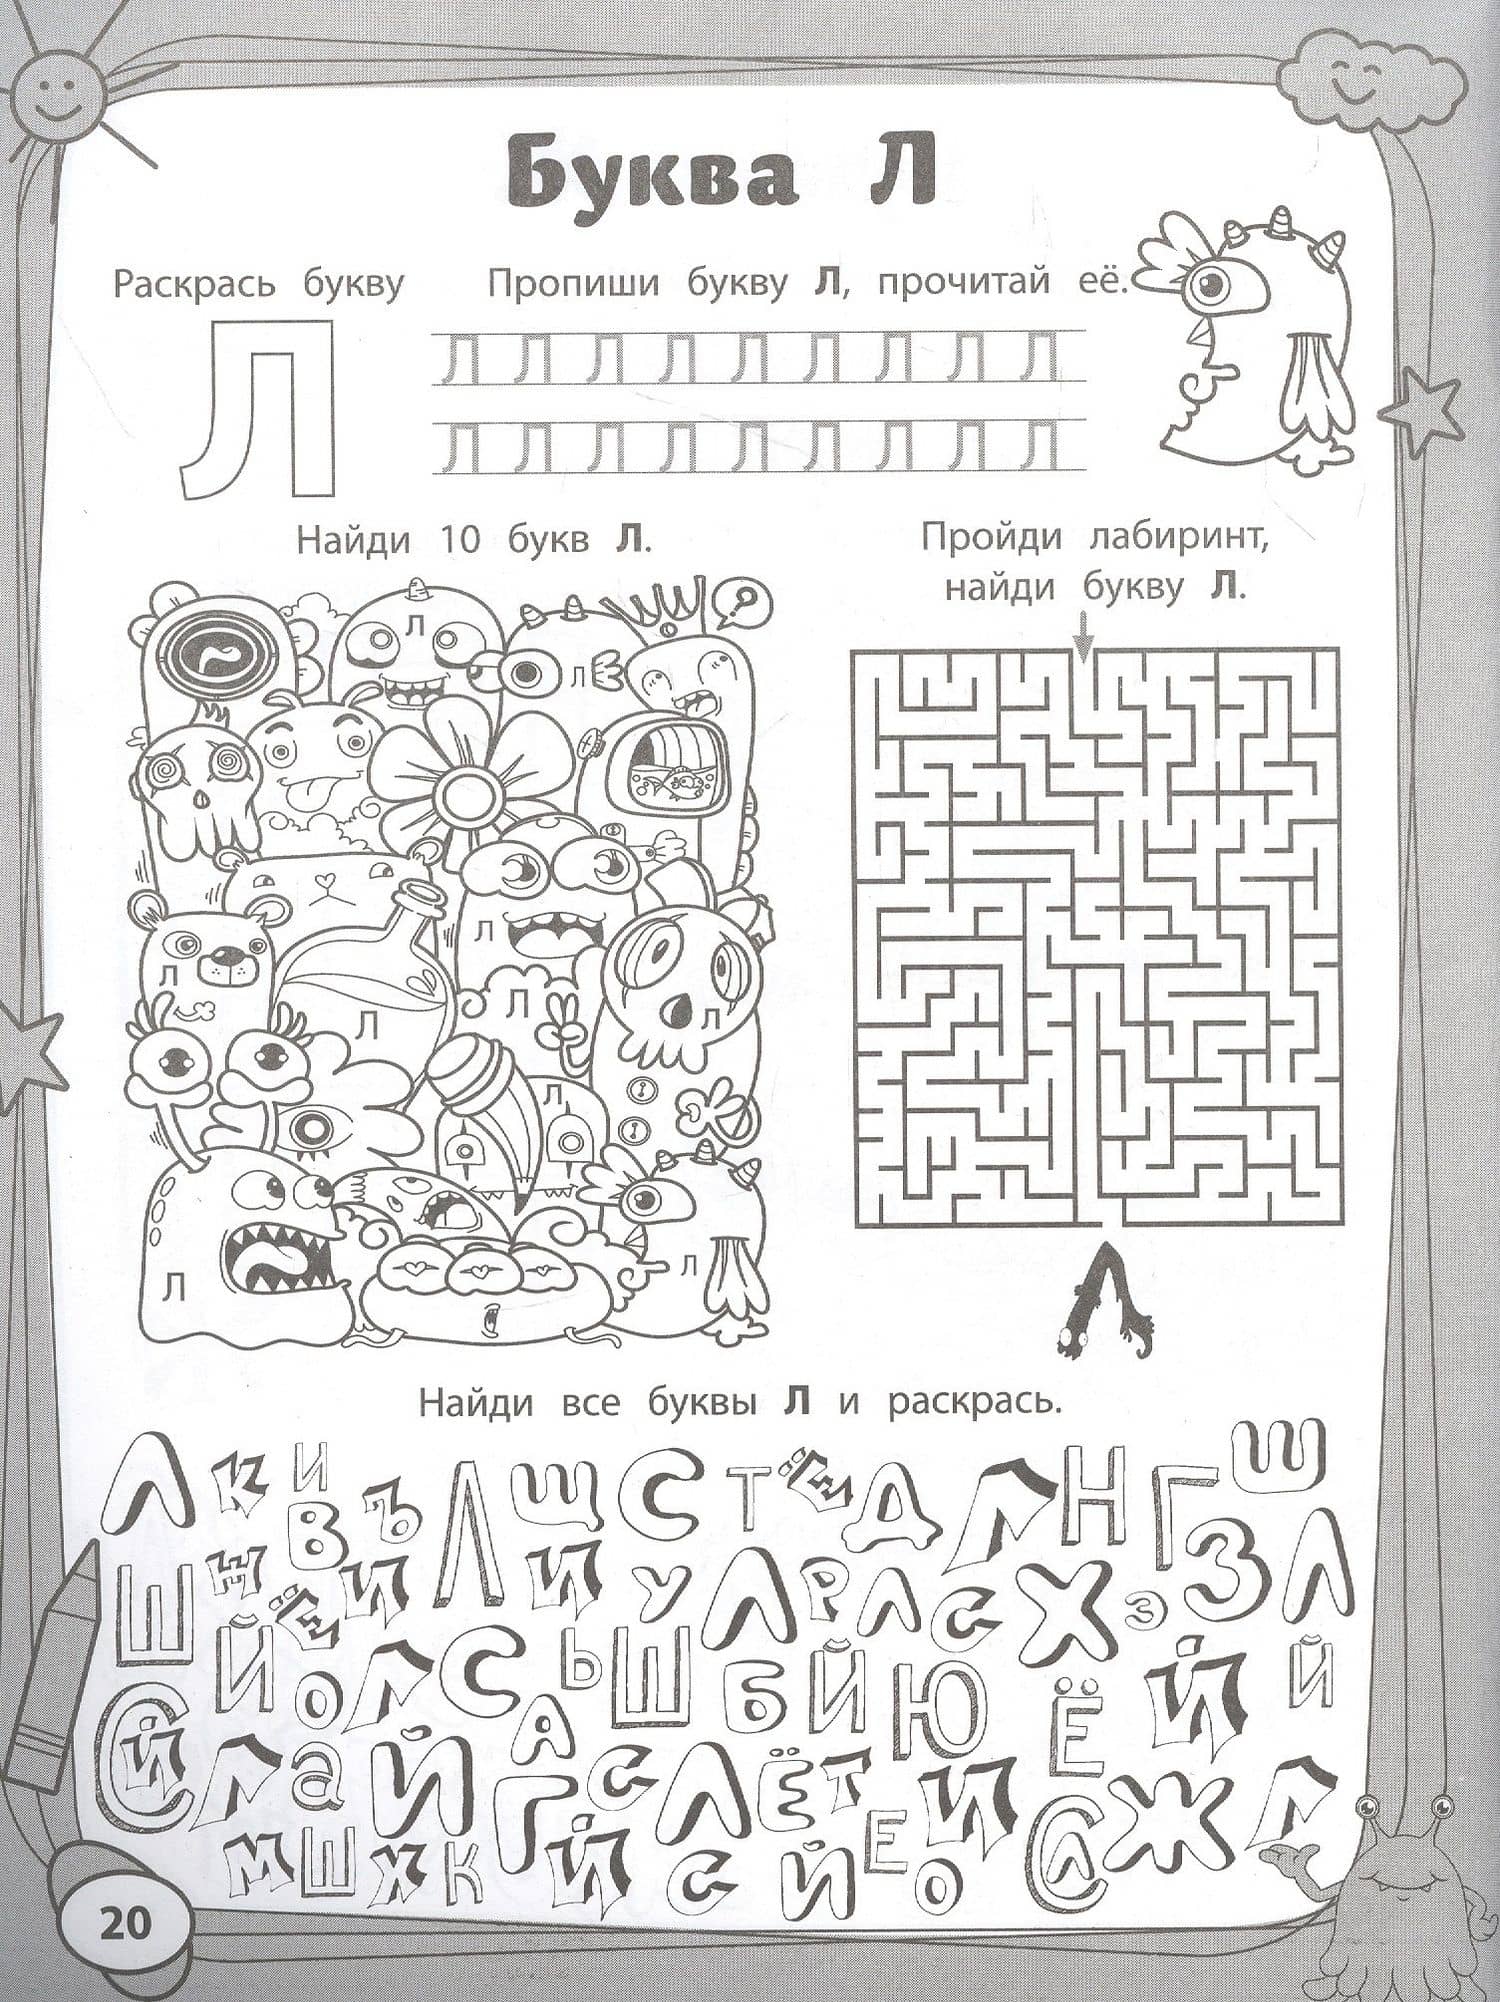 Буква Л
Раскрась букву
Пропиши букву Л, прочитай её.
Л
Л Л Л Л Л Л Л Л Л
Л Л Л Л Л Л Л Л Л
Найди 10 букв Л.
Пройди лабиринт,
найди букву Л.
?
Л
Л
Л
Л
Л
Л
Л
Л
Л
Л
Л
Найди все буквы Л и раскрась.
Л К И В Ъ Л Щ С Т Ё Д Л Н Г Ш
Ш Ж Ё И Л И У Л Р Л С Х З З Л
Й О Л С Ь Ш Б Й Ю Ё Й Й
С Й Л а Й А Г С Л Ё Т И Ж Л
М Ш Х К Й С Й Е О С Л
20